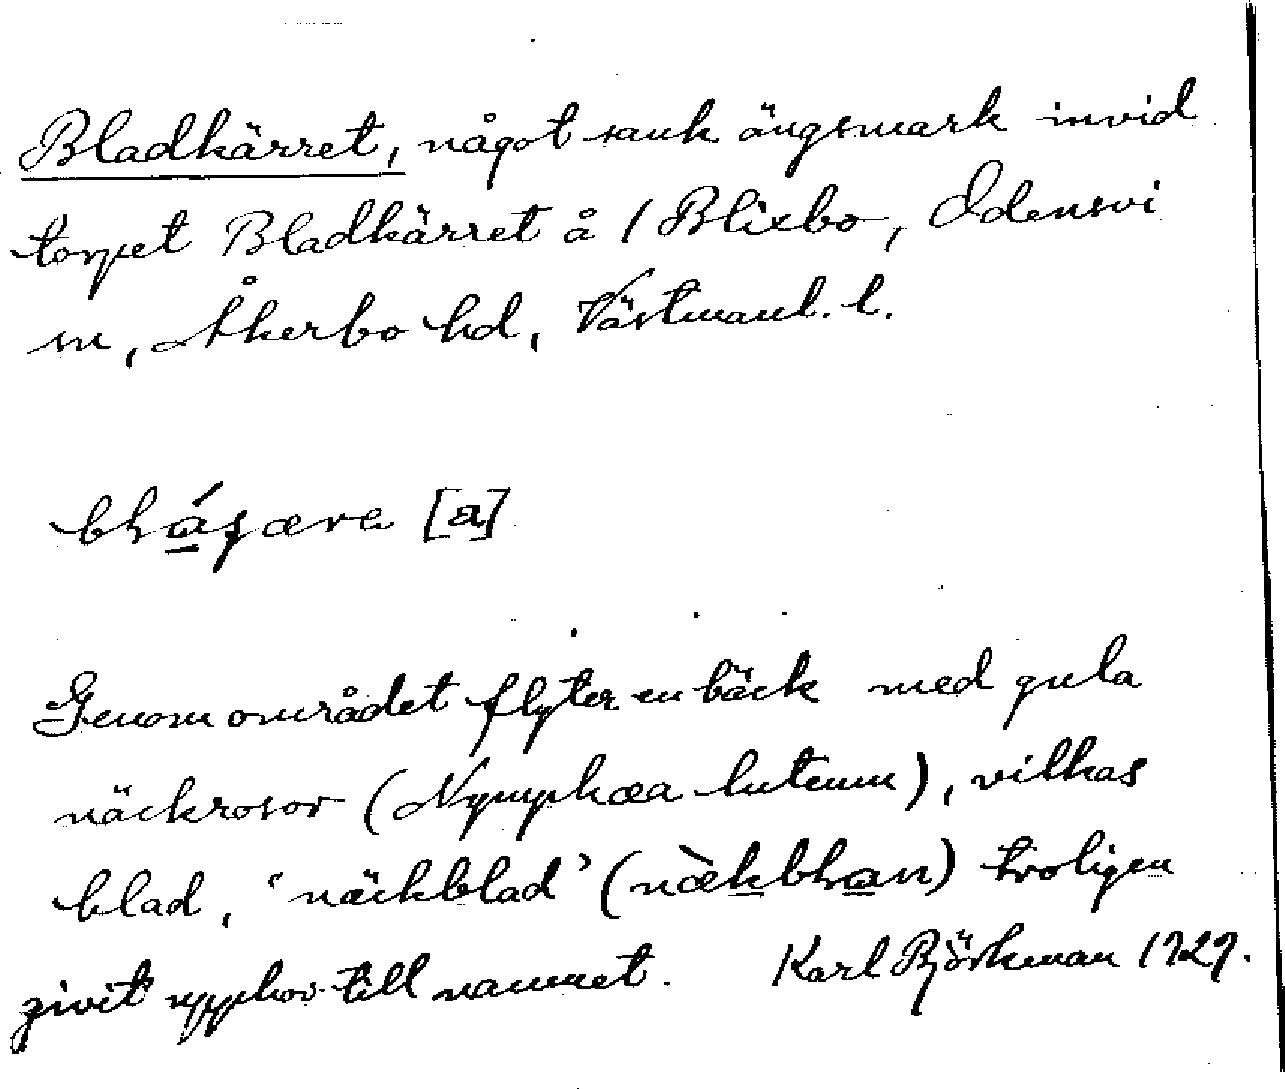 Bladkärret, något sank ängsmark invid
torpet Bladkärret å 1 Blixbo, Odensvi
sn, Åkerbo hd, Västmanl. l.
[a]
Genom området flyter en bäck med gula
näckrosor (Nymphæa luteum), vilkas
blad, 'näckblad' troligen
givit upphov till namnet. Karl Björkman 1929.